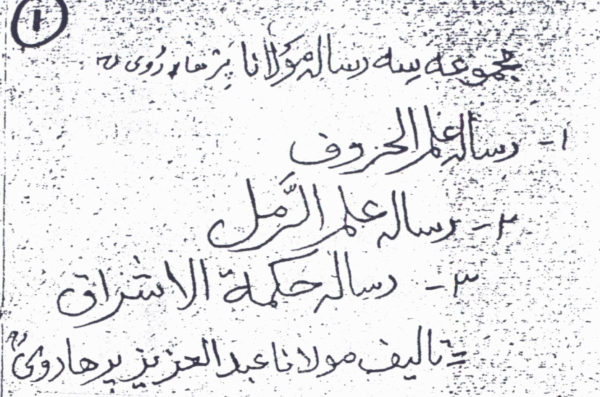 ١
مجموعه سه رساله مولانا پڑھاڑوی رح
١- رساله علم الحروف
٢- رساله علم الرَّمل
٣- رساله حكمة الاشراق
= تاليف مولانا عبدالعزيز پرهاروی رح